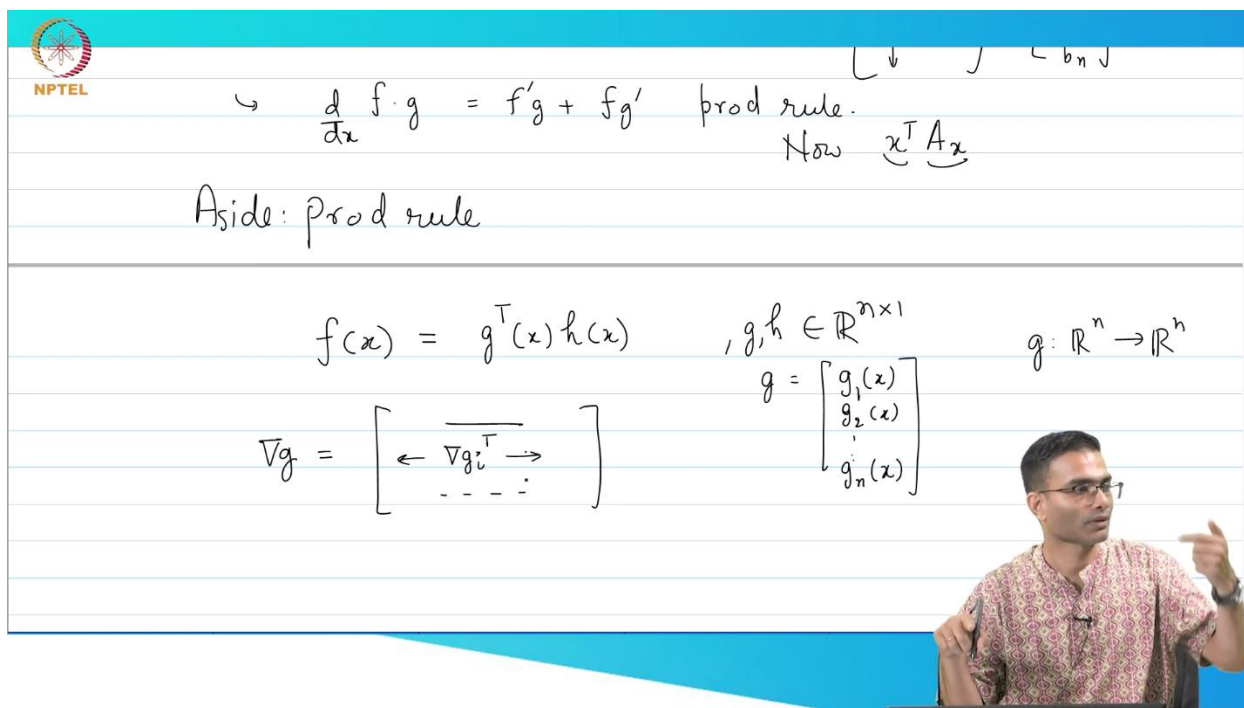 NPTEL
[ ↓ ] [ bₙ ]
↳ d/dx f·g = f'g + fg' prod rule.
Now xᵀ Ax
Aside: prod rule
f(x) = gᵀ(x) h(x) , g,h ∈ ℝⁿˣ¹ g: ℝⁿ → ℝⁿ
g = [ g₁(x)
g₂(x)
⋮
gₙ(x) ]
∇g = [ ← ∇gᵢᵀ → ]